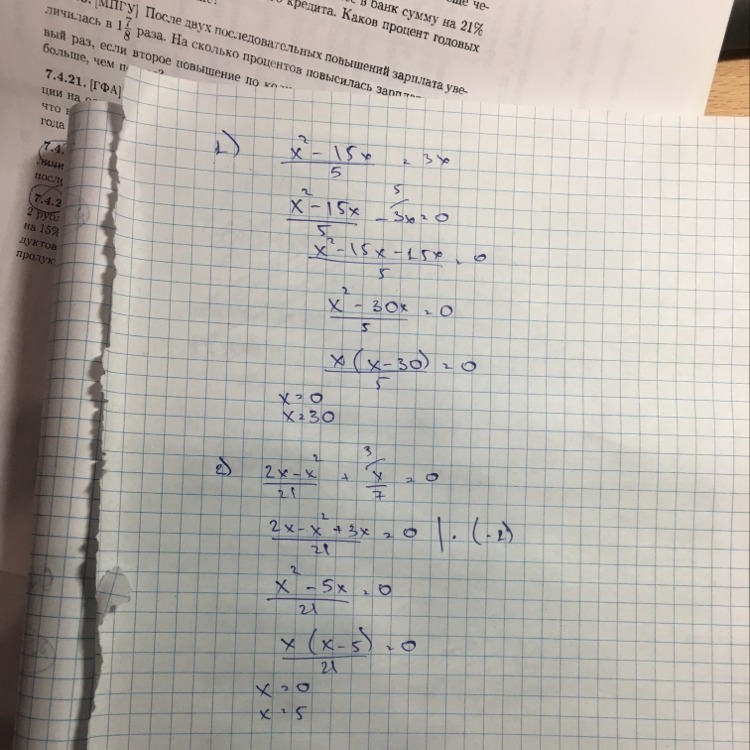 в банк сумму на 21%
кредита. Каков процент годовых
[МПГУ] После двух последовательных повышений зарплата уве-
личилась в 1 7/8 раза. На сколько процентов повысилась
вый раз, если второе повышение по
больше, чем
7.4.21. [ГФА]
ции на
что
года
7.4.
после
7.4.2
2 руб
на 15%
дуктов
продук
1) (x² - 15x)/5 = 3x
(x² - 15x)/5 - 3x = 0
5
(x² - 15x - 15x)/5 = 0
(x² - 30x)/5 = 0
x(x - 30)/5 = 0
x = 0
x = 30
2) (2x - x²)/21 + x/7 = 0
3
(2x - x² + 3x)/21 = 0 | · (-1)
(x² - 5x)/21 = 0
x(x - 5)/21 = 0
x = 0
x = 5